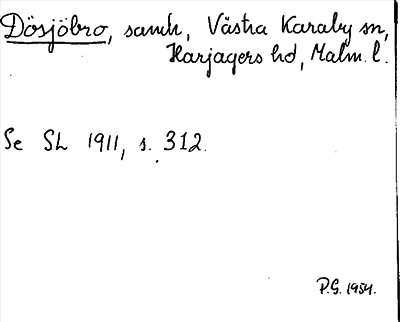 Dösjöbro, samh, Västra Karaby sn,
Harjagers hd, Malm. l.
Se SL 1911, s. 312.
P.G. 1954.